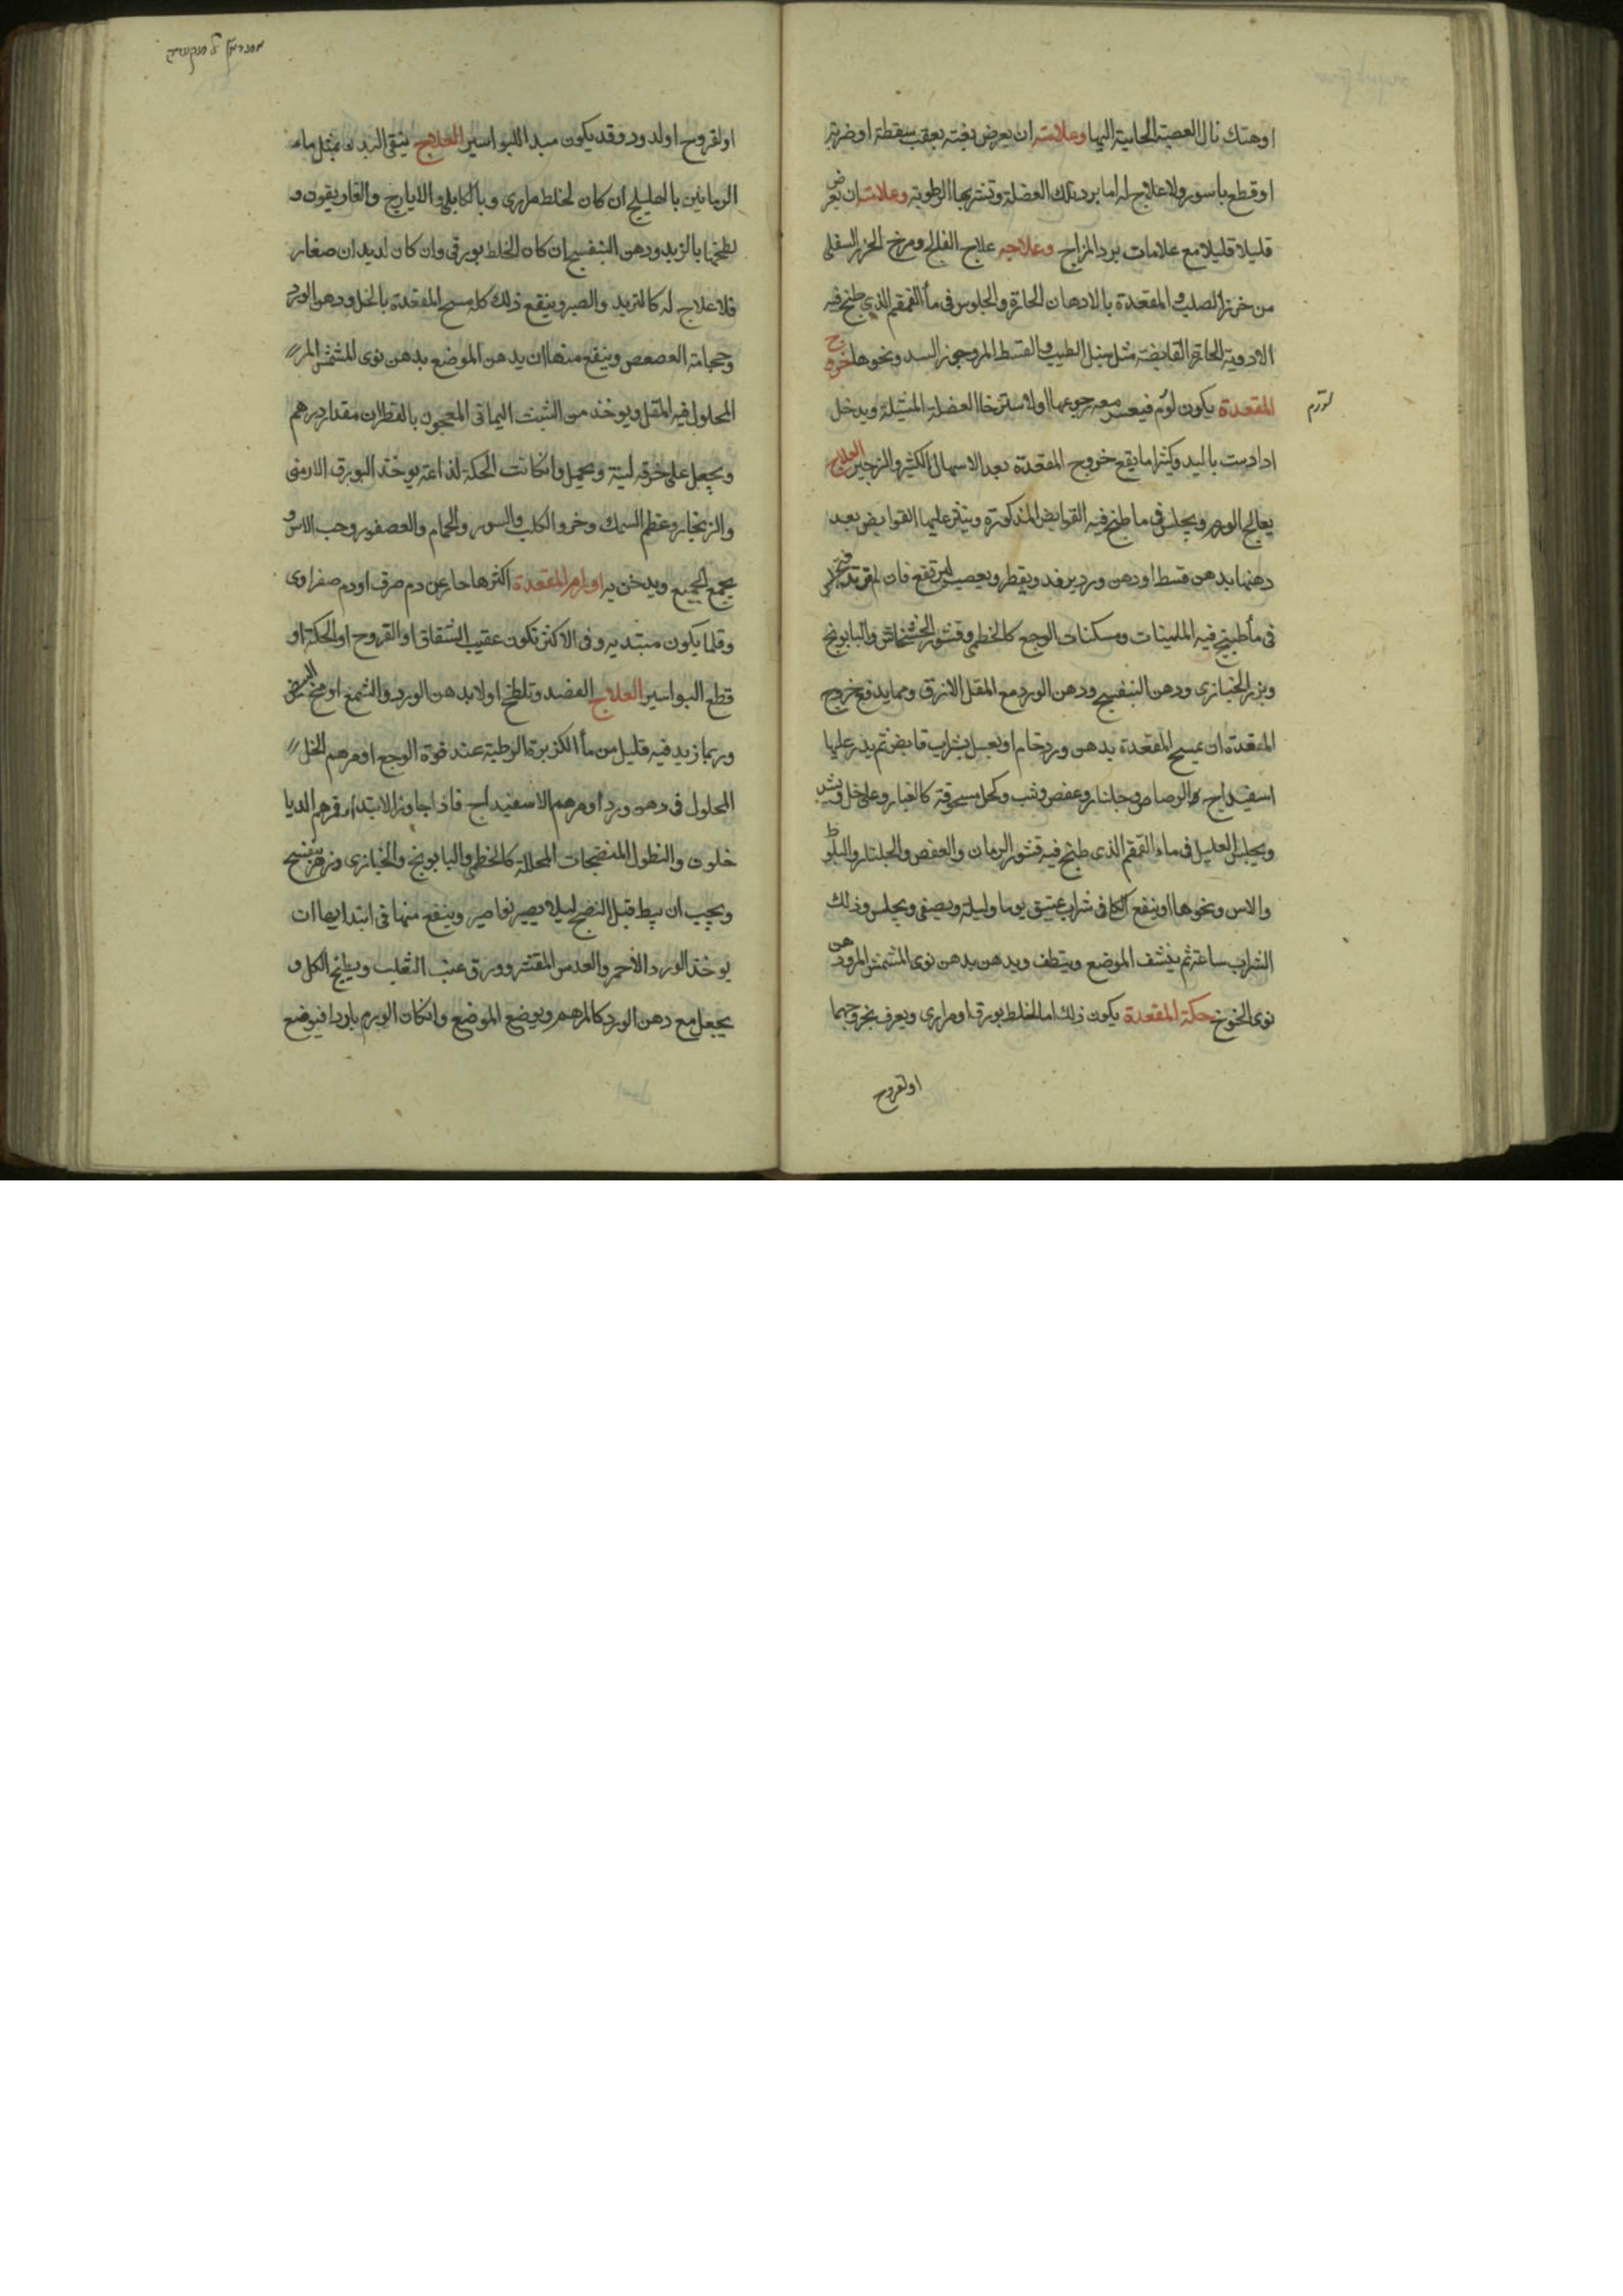 اوهتك نال العصبة الجانبية اليها وعلامته ان يعرض بغتة بعقب سقطة او ضربة
او قطع باسور ولا علاج له اما برد تلك العضلة وتشربها الرطوبة وعلامته ان يعرض
قليلا قليلا مع علامات برد المزاج وعلاجه علاج الفالج ومرخ الخرز السفلى
من خرز الصلب و المقعدة بالادهان الحارة والجلوس في ماأ القمقم الذي طبخ فيه
الادوية الحارة القابضة مثل سنبل الطيب والقسط المر وجوز السد ونحوها خروج
المقعدة يكون لورم فيعسر معه رجوعها او لاسترخا العضلة المشيلة ويدخل
لتورم
اذا دست باليد وكثيرا ما يقع خروج المقعدة بعد الاسهال الكثير والزحير العلاج
يعالج الورم ويجلس في ما طبخ فيه القوابض المذكورة وينثر عليها القوابض بعد
دهنها بدهن قسط او دهن ورد يرفد ويقطر ويعصب ليرتفع فان لم يرتد
في مأ طبيخ فيه الملينات ومسكنات الوجع كالخطمي وقشور الخشخاش والبابونج
وبزر الخبازى ودهن البنفسج ودهن الورد مع المقل الازرق ومما يدفع خروج
المقعدة ان يمسح المقعدة بدهن ورد خام او يغسل بشراب قابض ثم يذر عليها
اسفيداج الرصاص وجلنار وعفص وشب وكحل مسحوقة كالغبار وعلى خل ويشد
ويجلس العليل في ماء القمقم الذي طبخ فيه قشور الرمان والعفص والجلنار والبلوط
والاس ونحوها او ينقع الكل في شراب عتيق يوما وليلة ويصفى ويجلس وذلك
الشراب ساعة ثم ينشف الموضع وينظف ويدهن بدهن نوى المشمش المر ودهن
نوى الخوخ حكة المقعدة يكون ذلك اما لخلط بورقى او مرارى ويعرف بخروجهما
او لقروح
او لقروح او لدود وقد يكون مبدا للبواسير العلاج ينقى البدن بمثل ماء
الرمانين بالهليلج ان كان لخلط مرارى وبالكابلي والايارج والغاريقون و
لطخها بالزبد ودهن البنفسج ان كان الخلط بورقى وان كان لديدان صغار
فلا علاج له كالتربد والصبر وينفع ذلك كله مسح المقعدة بالخل ودهن الورد
وحجامة العصعص وينفع منها ان يدهن الموضع بدهن نوى المشمش المر
المحلول فيه المقل ويوخذ من الشب اليماني المعجون بالقطران مقدار درهم
ويجعل على خرقة لينة ويحمل وان كانت الحكة لذاعة يوخذ البورق الارمنى
والزنجار وعظم السمك وخرو الكلب والسنور والحمام والعصفور وحب الاس و
يجمع الجميع ويدخن به اورام المقعدة اكثرها حار عن دم صرف او دم صفراوى
وقلما يكون مبتديه وفى الاكثر تكون عقيب الشقاق او القروح او الحكة او
قطع البواسير العلاج الفصد وتلطخ اولا بدهن الورد والشمع او مخ البيض
وربما زيد فيه قليل من مأ الكزبرة الرطبة عند قوة الوجع او مرهم الخل
المحلول فى دهن ورد او مرهم الاسفيداج فاذا جاوز الابتداء فمرهم الديا
خلون والنطول المنضجات المحللة كالخطمي والبابونج والخبازى وزهر بنفسج
ويجب ان يبط قبل النضج ليلا يصير نواصير وينفع منها فى ابتدايها ان
يوخذ الورد الأحمر والعدس المقشر وورق عنب الثعلب ويطبخ الكل و
يجعل مع دهن الورد كالمرهم ويوضع الموضع وان كان الورم باردا فيوضع